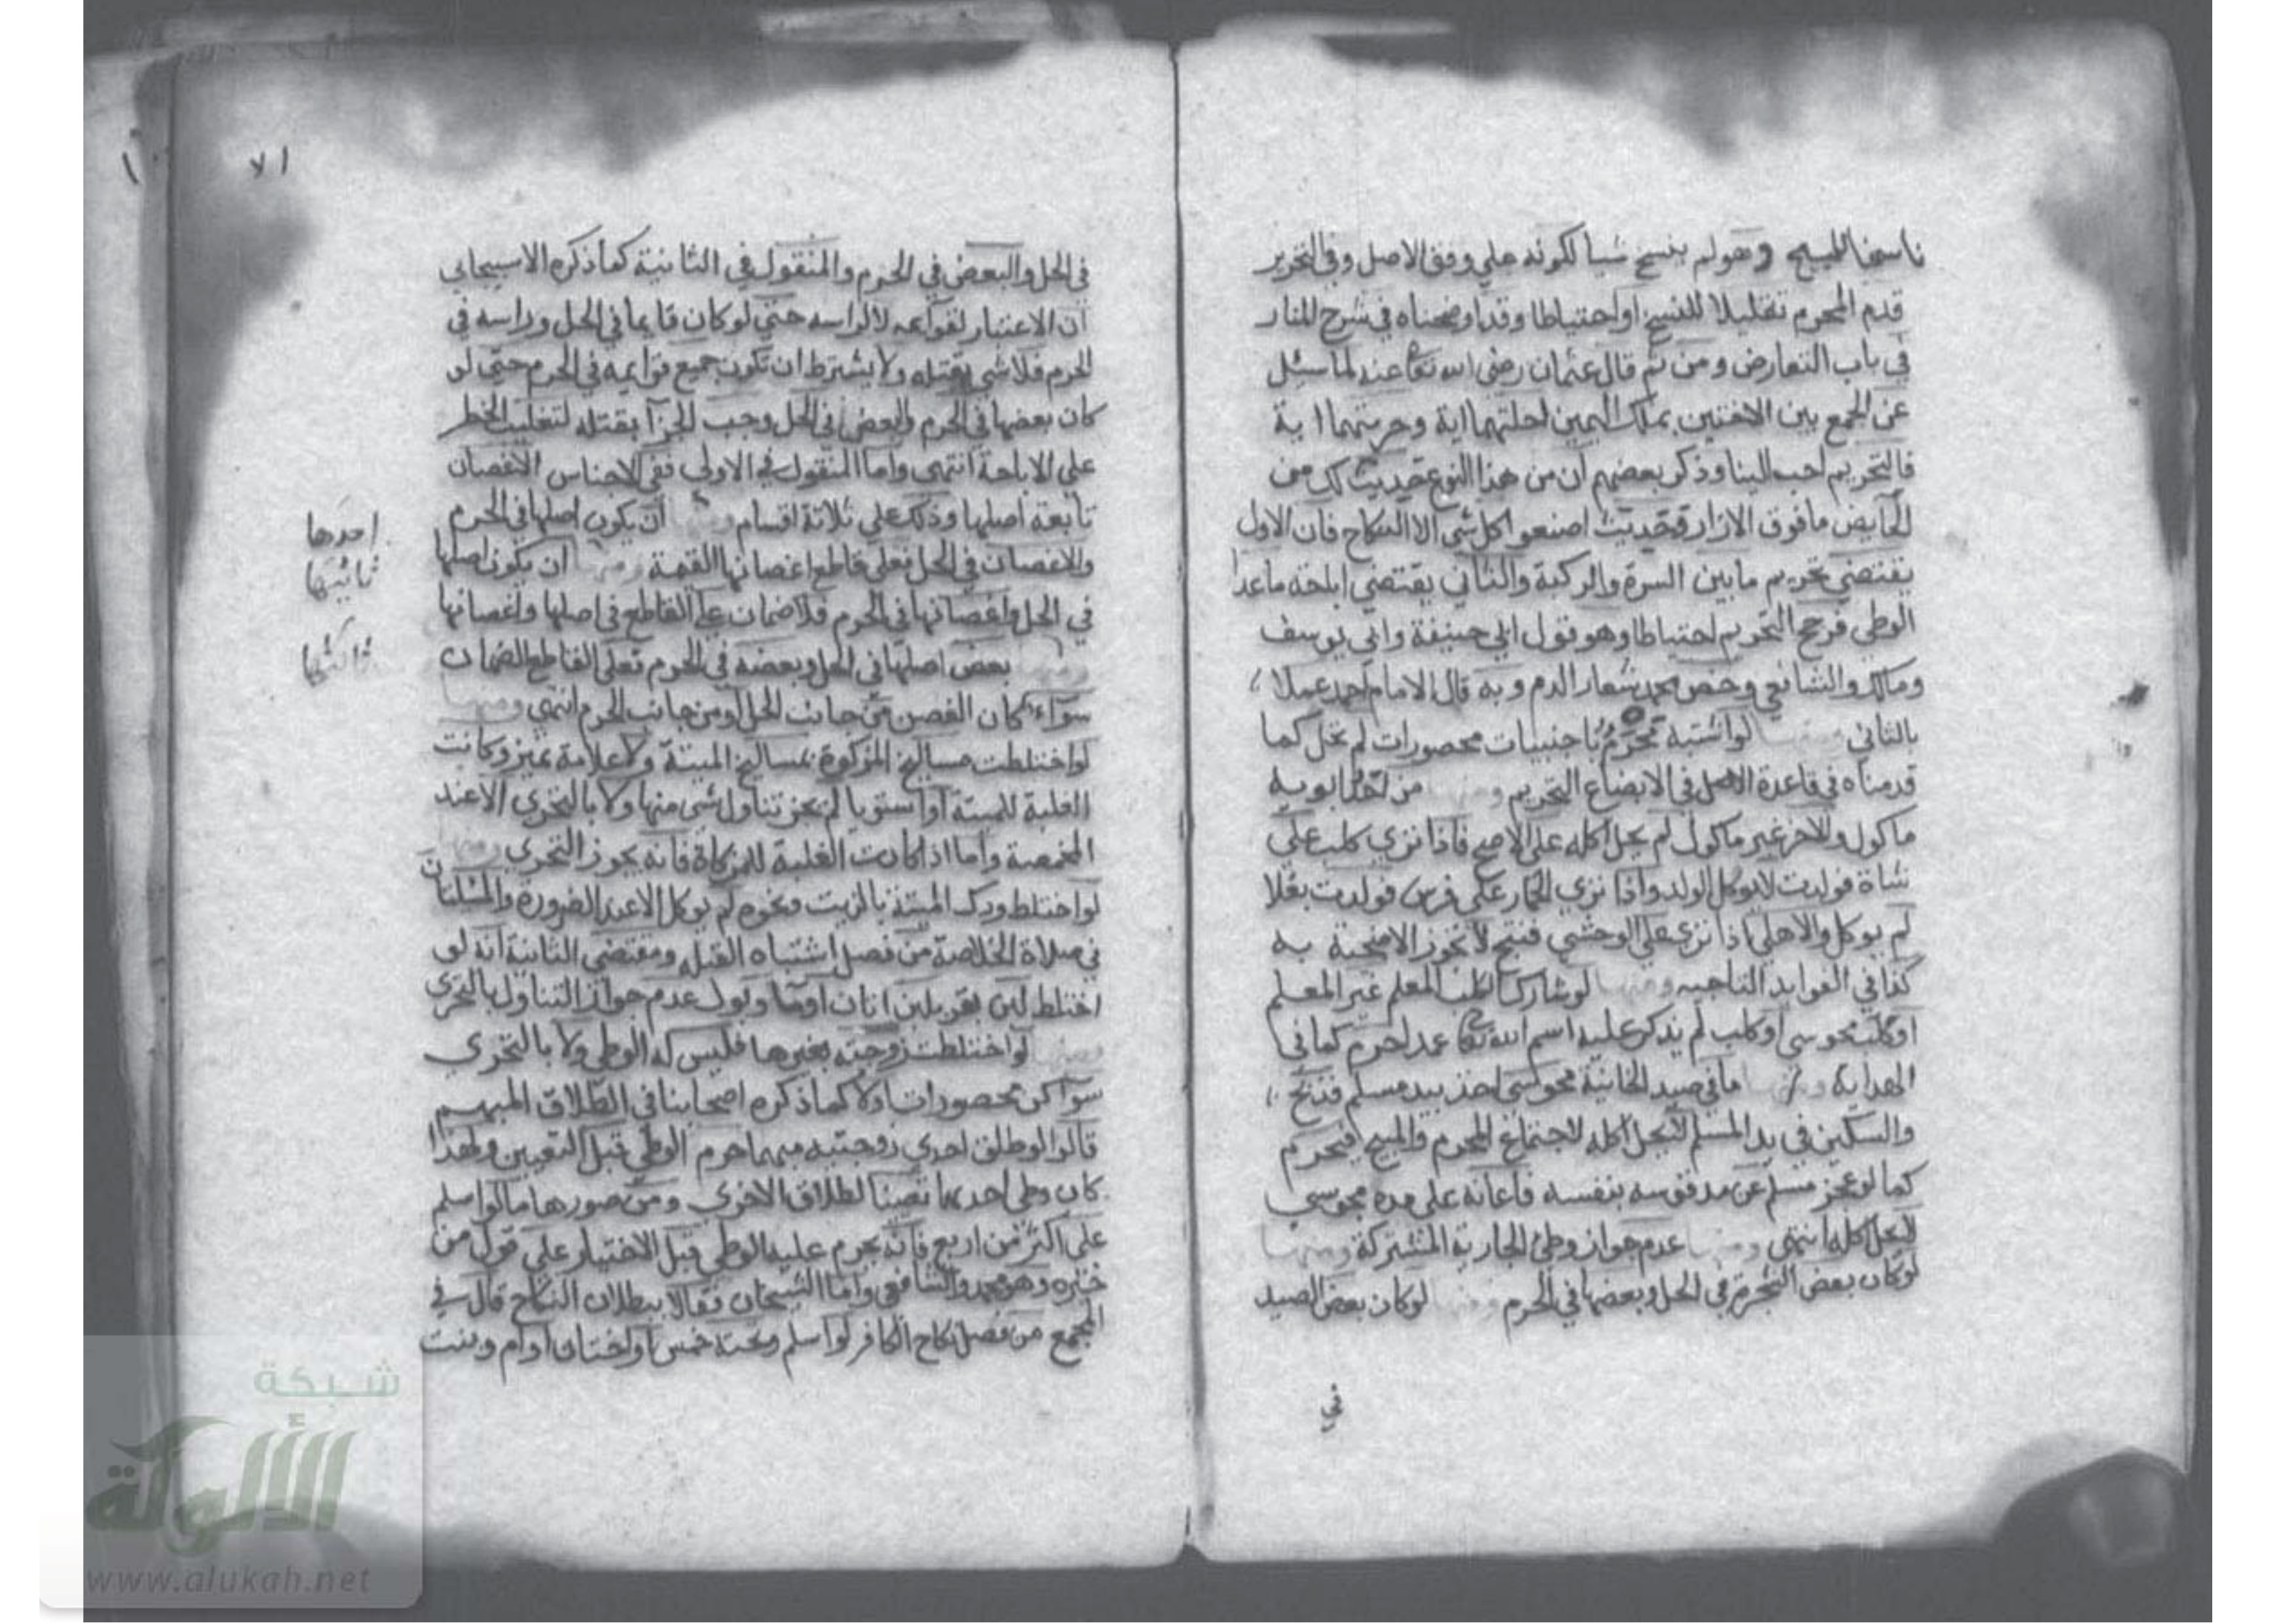 ناسخا للمبيح وهو لم ينسخ شيا لكونه علي وفق الاصل وفي التحرير
قدم المحرم تقليلا للنسخ او احتياطا وقد اوضحناه في شرح المنار
في باب التعارض ومن ثم قال عثمان رضي الله تعا عنه لما سئل
عن الجمع بين الاختين بملك اليمين احلتهما اية وحرمتهما اية
فالتحريم احب الينا وذكر بعضهم ان من هذا النوع حديث لك من
الحايض ما فوق الازار وحديث اصنعوا كل شي الا النكاح فان الاول
يقتضي تحريم ما بين السرة والركبة والثاني يقتضي اباحة ما عدا
الوطي فرجح التحريم احتياطا وهو قول ابي حنيفة وابي يوسف
ومالك والشافعي وخص محمد شعار الدم وبه قال الامام احمد عملا
بالثاني ومنها لو اشتبه محرم باجنبيات محصورات لم تحل كما
قدمناه في قاعدة الاصل في الابضاع التحريم ومنها من احد ابويه
ماكول والاخر غير ماكول لم يحل اكله علي الاصح فاذا نزي كلب علي
شاة فولدت لا يوكل الولد واذا نزي الحمار علي فرس فولدت بغلا
لم يوكل والاهلي اذا نزي علي الوحشي فنتج لا تجوز الاضحية به
كذا في الفوايد التاجيه ومنها لو شارك الكلب المعلم غير المعلم
او كلب مجوسي او كلب لم يذكر عليه اسم الله تعا عمدا حرم كما في
الهداية ومنها ما في صيد الخانية مجوسي اخذ بيد مسلم فذبح
والسكين في يد المسلم لا يحل اكله لاجتماع المحرم والمبيح فيحرم
كما لو عجز مسلم عن مد قوسه بنفسه فاعانه علي مده مجوسي
لا يحل اكله انتهي ومنها عدم جواز وطئ الجارية المشتركة ومنها
لو كان بعض الشجرة في الحل وبعضها في الحرم ومنها لو كان بعض الصيد
في
١٧
في الحل والبعض في الحرم والمنقول في الثانية كما ذكره الاسبيجابي
ان الاعتبار لقوائمه لا لراسه حتي لو كان قايما في الحل وراسه في
الحرم فلا شي بقتله ولا يشترط ان تكون جميع قوايمه في الحرم حتي لو
كان بعضها في الحرم والبعض في الحل وجب الجزآ بقتله لتغليب الحظر
علي الاباحة انتهي واما المنقول في الاولي ففي الاجناس الاغصان
تابعة اصلها وذلك علي ثلاثة اقسام ان يكون اصلها في الحرم
والاغصان في الحل فعلي قاطع اغصانها القيمة ان يكون اصلها
في الحل واغصانها في الحرم فلا ضمان علي القاطع في اصلها واغصانها
بعض اصلها في الحل وبعضه في الحرم فعلي القاطع الضمان
سوآء كان الغصن من جانب الحل او من جانب الحرم انتهي ومنها
لو اختلطت مساليخ المذكوة بمساليخ الميتة ولا علامة تميز وكانت
الغلبة للميتة او استويا لم يجز تناول شي منها ولا بالتحري الا عند
المخمصة واما اذا كانت الغلبة للمذكاة فانه يجوز التحري ومنها
لو اختلط ودك الميتة بالزيت ونحوه لم يوكل الا عند الضرورة والمسئلتان
في صلاة الخلاصة من فصل اشتباه القبلة ومقتضي الثانية انه لو
اختلط لبن بقر بلبن اتان او مآ وبول عدم جواز التناول بالتحري
ومنها لو اختلطت زوجته بغيرها فليس له الوطي ولا بالتحري
سوآ كن محصورات او لا كما ذكره اصحابنا في الطلاق المبهم
قالوا لو طلق احدي زوجتيه مبهما حرم الوطي قبل التعيين ولهذا
كان وطي احدهما تعيينا لطلاق الاخري ومن صورها ما لو اسلم
علي اكثر من اربع فانه يحرم عليه الوطي قبل الاختيار علي قول من
خيره وهو محمد والشافعي واما الشيخان فقالا ببطلان النكاح قال في
المجمع من فصل نكاح الكافر لو اسلم وتحته خمس او اختان او ام وبنت
احدها
ثانيها
ثالثها
شبكة
الألوكة
www.alukah.net